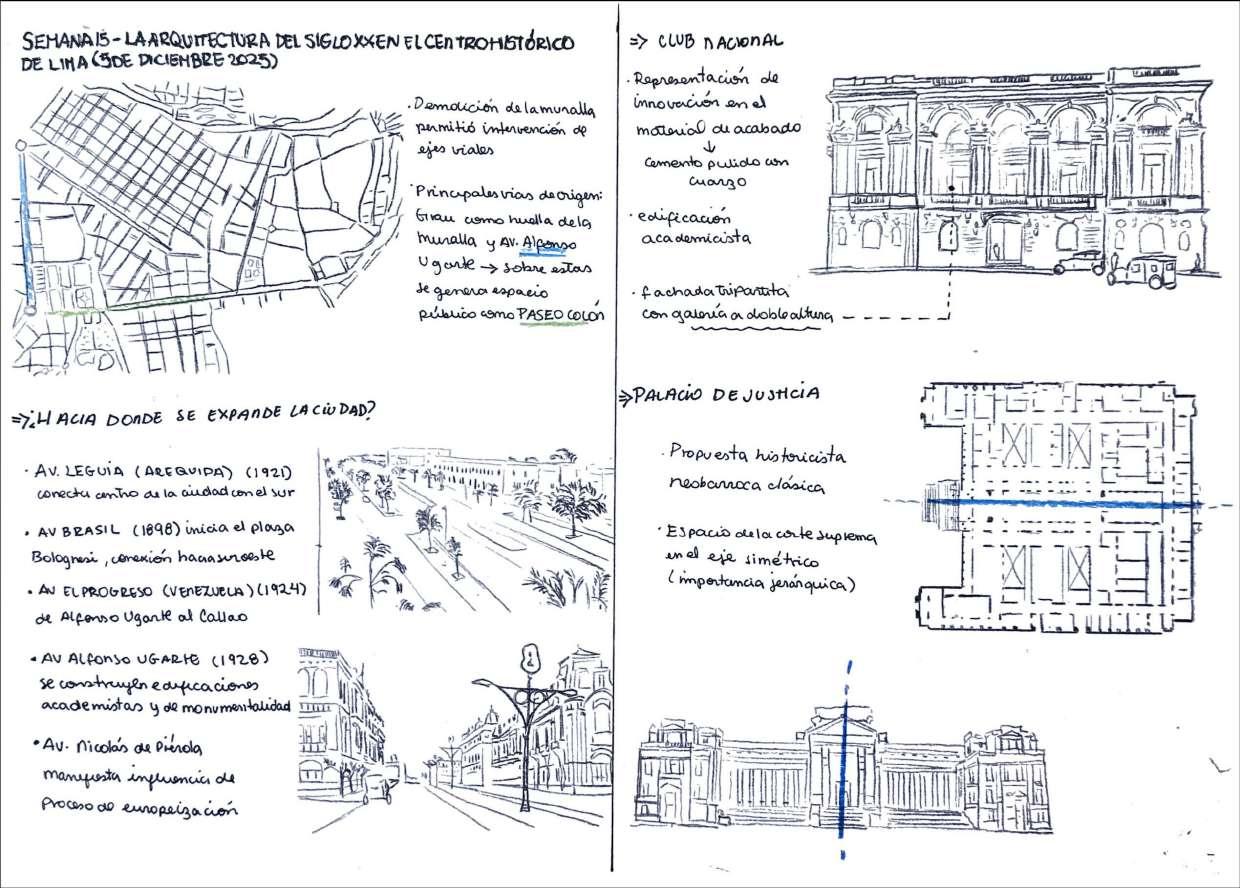 SEMANA 15 - LA ARQUITECTURA DEL SIGLO XX EN EL CENTRO HISTÓRICO
DE LIMA (5 DE DICIEMBRE 2025)
· Demolición de la muralla
permitió intervención de
ejes viales
· Principales vias de origen:
Grau como huella de la
muralla y Av. Alfonso
Ugarte → sobre estas
se genera espacio
público como PASEO COLÓN
⇒ ¿HACIA DONDE SE EXPANDE LA CIUDAD?
· AV. LEGUIA (AREQUIPA) (1921)
conecta centro de la ciudad con el sur
· AV BRASIL (1898) inicia el plaza
Bolognesi, conexión hacia suroeste
· AV EL PROGRESO (VENEZUELA) (1924)
de Alfonso Ugarte al Callao
· AV ALFONSO UGARTE (1928)
se construyen edificaciones
academistas y de monumentalidad
· AV. Nicolás de Piérola
manifiesta influencia de
proceso de europeización
⇒ CLUB NACIONAL
· Representación de
innovación en el
material de acabado
↓
Cemento pulido con
cuarzo
· edificación
academicista
· fachada tripartita
con galería a doble altura
⇒ PALACIO DE JUSTICIA
· Propuesta historicista
neobarroca clásica
· Espacio de la corte suprema
en el eje simétrico
(importancia jerárquica)